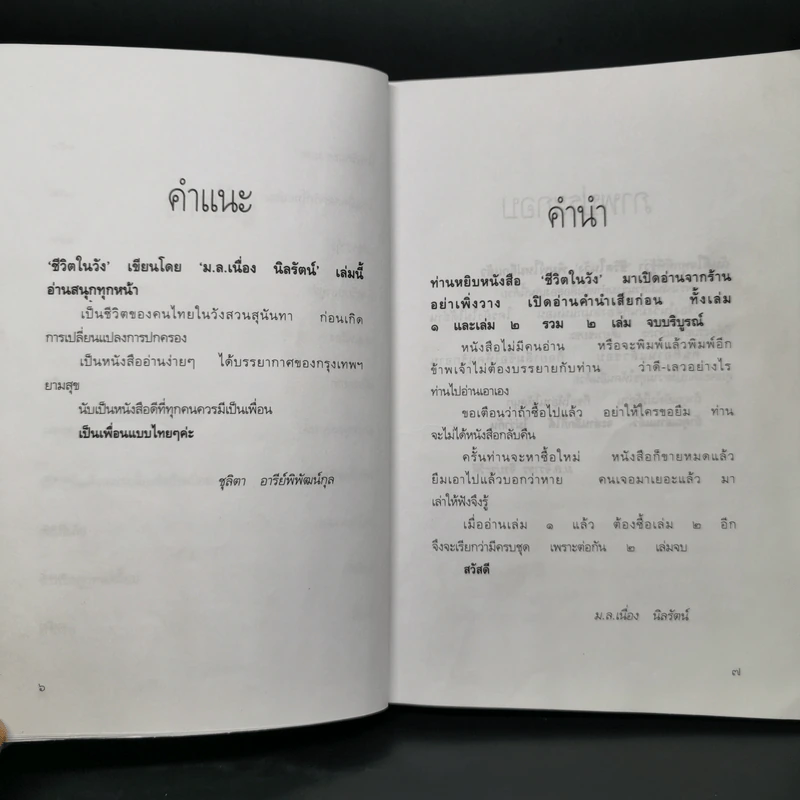 คำแนะ
'ชีวิตในวัง' เขียนโดย 'ม.ล.เนื่อง นิลรัตน์' เล่มนี้
อ่านสนุกทุกหน้า
เป็นชีวิตของคนไทยในวังสวนสุนันทา ก่อนเกิด
การเปลี่ยนแปลงการปกครอง
เป็นหนังสืออ่านง่ายๆ ได้บรรยากาศของกรุงเทพฯ
ยามสุข
นับเป็นหนังสือดีที่ทุกคนควรมีเป็นเพื่อน
เป็นเพื่อนแบบไทยๆค่ะ
ชุลิตา อารีย์พิพัฒน์กุล
๖
คำนำ
ท่านหยิบหนังสือ 'ชีวิตในวัง' มาเปิดอ่านจากร้าน
อย่าเพิ่งวาง เปิดอ่านคำนำเสียก่อน ทั้งเล่ม
๑ และเล่ม ๒ รวม ๒ เล่ม จบบริบูรณ์
หนังสือไม่มีคนอ่าน หรือจะพิมพ์แล้วพิมพ์อีก
ข้าพเจ้าไม่ต้องบรรยายกับท่าน ว่าดี-เลวอย่างไร
ท่านไปอ่านเอาเอง
ขอเตือนว่าถ้าซื้อไปแล้ว อย่าให้ใครขอยืม ท่าน
จะไม่ได้หนังสือกลับคืน
ครั้นท่านจะหาซื้อใหม่ หนังสือก็ขายหมดแล้ว
ยืมเอาไปแล้วบอกว่าหาย คนเจอมาเยอะแล้ว มา
เล่าให้ฟังจึงรู้
เมื่ออ่านเล่ม ๑ แล้ว ต้องซื้อเล่ม ๒ อีก
จึงจะเรียกว่ามีครบชุด เพราะต่อกัน ๒ เล่มจบ
สวัสดี
ม.ล.เนื่อง นิลรัตน์
๗